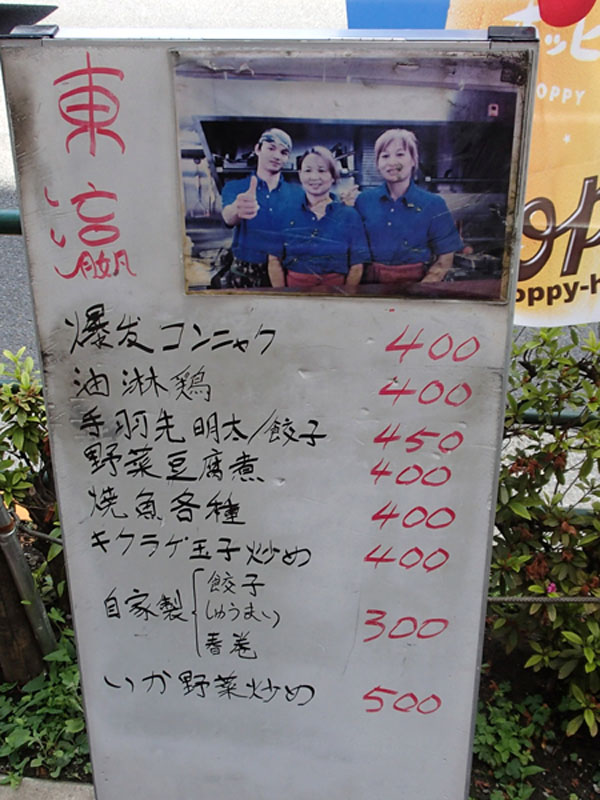 東瀛
ホッピ
OPPY
op
oppy-h
爆发コンニャク 400
油淋鶏 400
手羽先明太/餃子 450
野菜豆腐煮 400
焼魚各種 400
キクラゲ玉子炒め 400
自家製 餃子 しゅうまい 春巻 300
いか野菜炒め 500